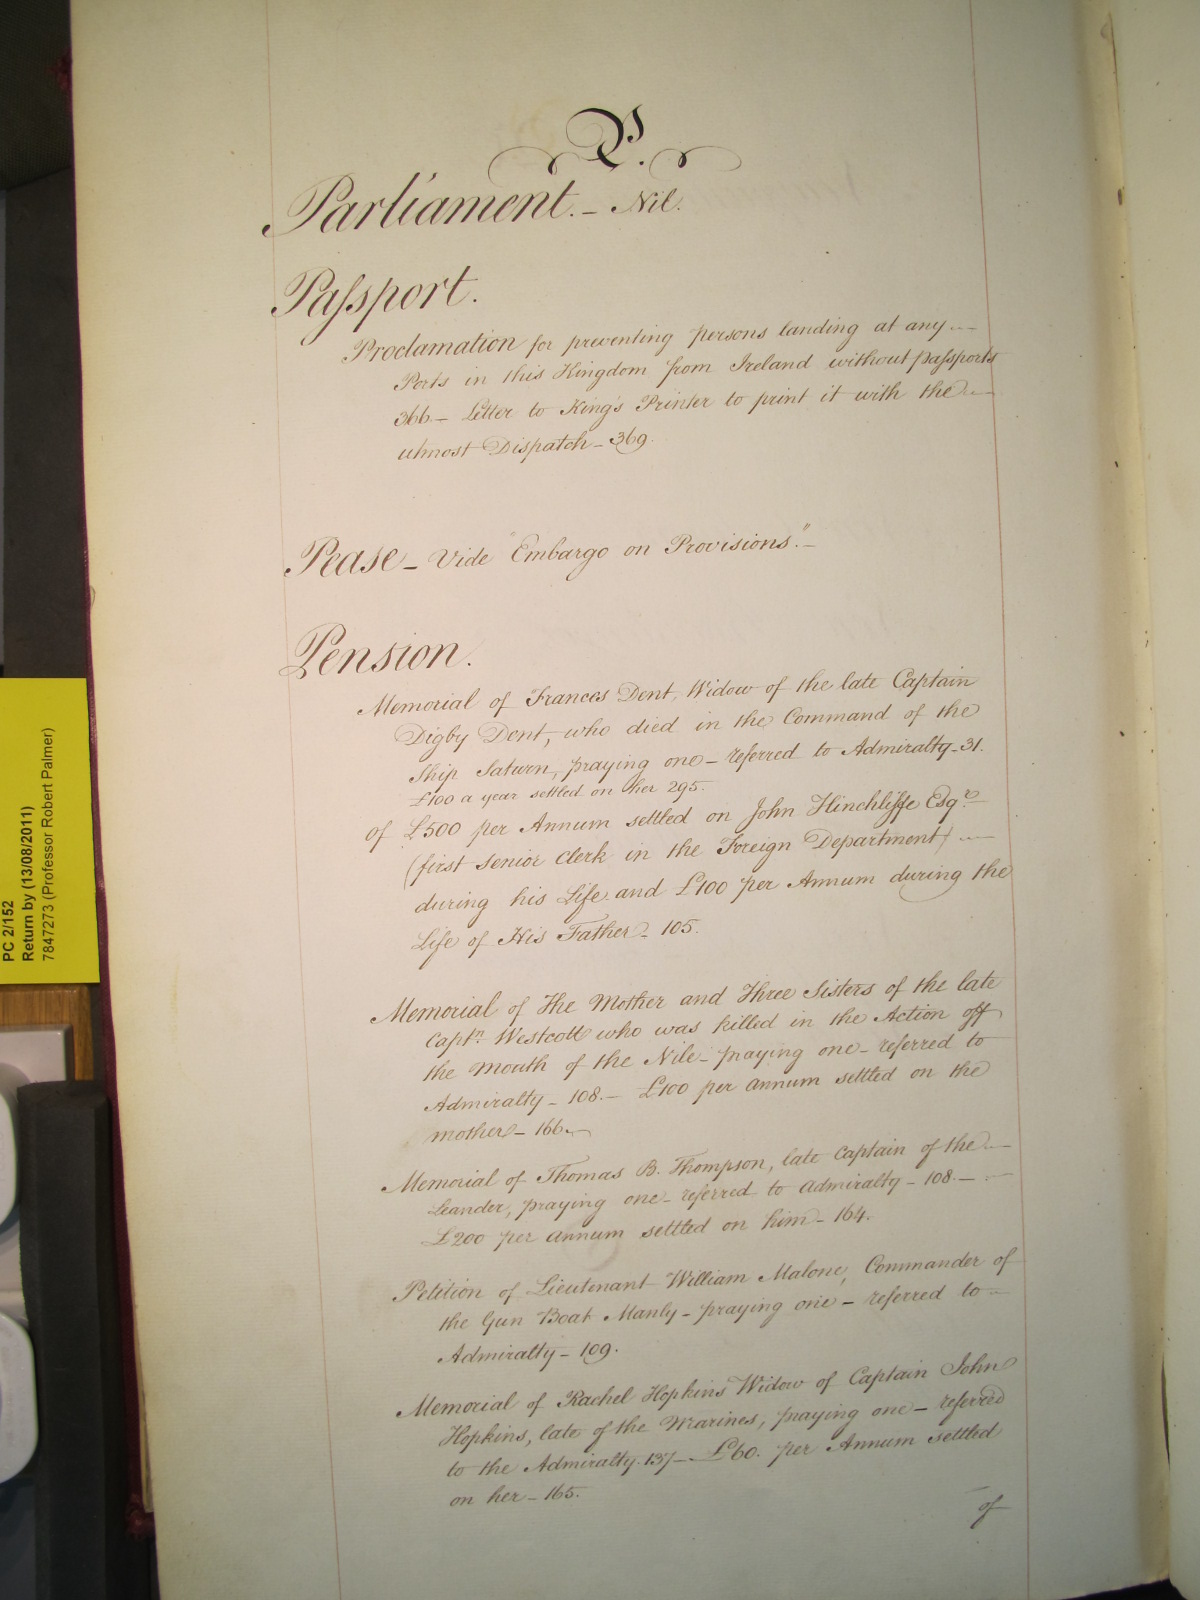 P.
Parliament. - Nil.
Passport.
Proclamation for preventing persons landing at any
Ports in this Kingdom from Ireland without passports
366 - Letter to King's Printer to print it with the
utmost Dispatch - 369.
Pease - Vide "Embargo on Provisions." -
Pension.
Memorial of Frances Dent, Widow of the late Captain
Digby Dent, who died in the Command of the
Ship Saturn, praying one - referred to Admiralty - 31.
£100 a year settled on her 295.
of £500 per Annum settled on John Hinchliffe Esqre
(first Senior Clerk in the Foreign Department)
during his Life and £100 per Annum during the
Life of His Father - 105.
Memorial of The Mother and Three Sisters of the late
Captn. Westcott who was killed in the Action off
the Mouth of the Nile - praying one - referred to
Admiralty - 108. - £100 per annum settled on the
mother - 166. -
Memorial of Thomas B. Thompson, late Captain of the
Leander, praying one - referred to Admiralty - 108. -
£200 per annum settled on him - 164.
Petition of Lieutenant William Malone, Commander of
the Gun Boat Manly - praying one - referred to
Admiralty - 109.
Memorial of Rachel Hopkins Widow of Captain John
Hopkins, late of the Marines, praying one - referred
to the Admiralty. 137 - £60. per Annum settled
on her - 165.
of
PC 2/152
Return by (13/08/2011)
7847273 (Professor Robert Palmer)